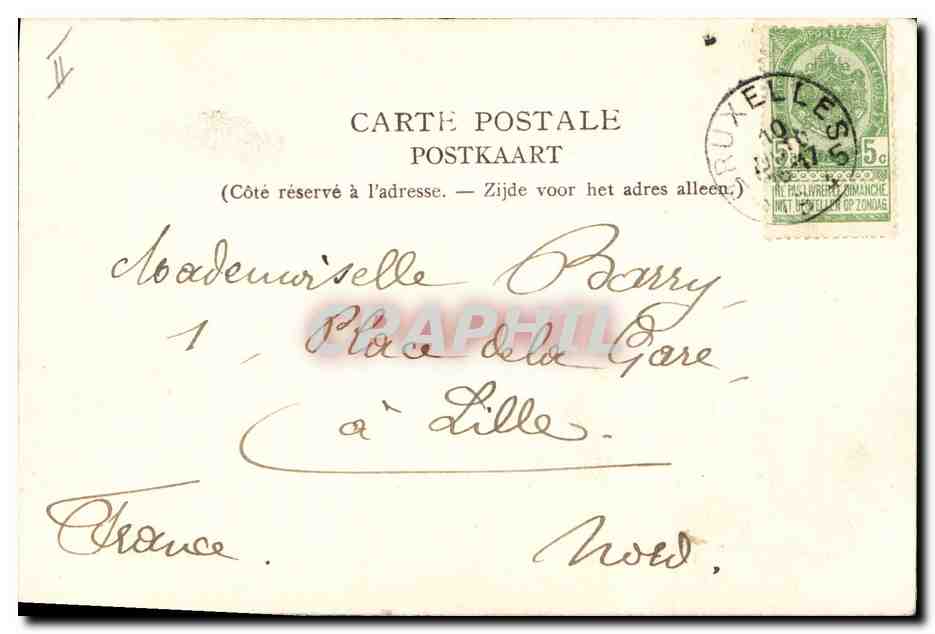 II
CARTE POSTALE
POSTKAART
(Côté réservé à l'adresse. — Zijde voor het adres alleen.)
POSTES
BRUXELLES 5
10
5c 5c
NE PAS LIVRER LE DIMANCHE
NIET BESTELLEN OP ZONDAG
Mademoiselle Barry
CPAPHIL
1, Place de la Gare
à Lille.
France. Nord.